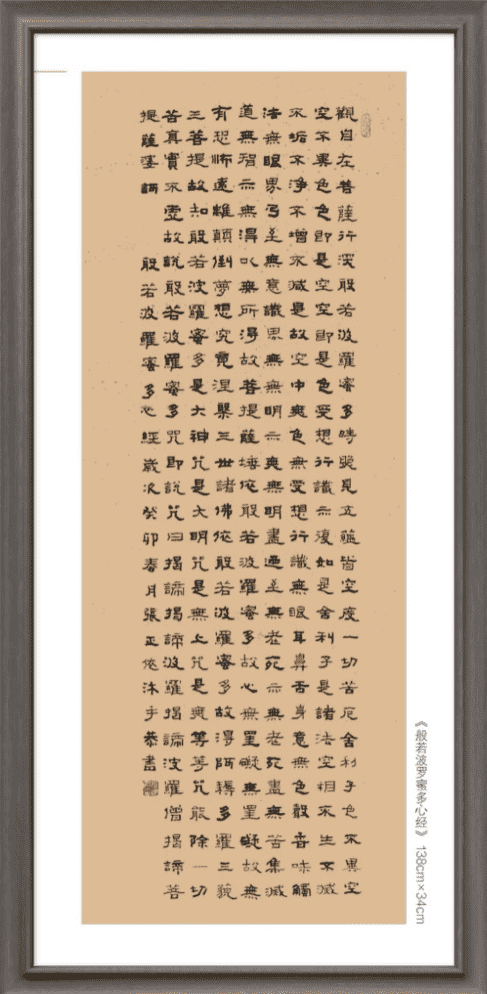 觀自在菩薩行深般若波羅蜜多時照見五蘊皆空度一切苦厄舍利子色不異空
空不異色色即是空空即是色受想行識亦復如是舍利子是諸法空相不生不滅
不垢不淨不增不減是故空中無色無受想行識無眼耳鼻舌身意無色聲香味觸
法無眼界乃至無意識界無無明亦無無明盡乃至無老死亦無老死盡無苦集滅
道無智亦無得以無所得故菩提薩埵依般若波羅蜜多故心無罣礙無罣礙故無
有恐怖遠離顛倒夢想究竟涅槃三世諸佛依般若波羅蜜多故得阿耨多羅三藐
三菩提故知般若波羅蜜多是大神咒是大明咒是無上咒是無等等咒能除一切
苦真實不虛故說般若波羅蜜多咒即說咒曰揭諦揭諦波羅揭諦波羅僧揭諦菩
提薩婆訶 般若波羅蜜多心經歲次癸卯春月張正依沐手恭書
《般若波罗蜜多心经》 138cm×34cm